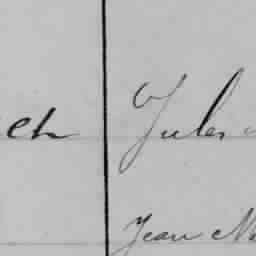 ch Jules
Jean